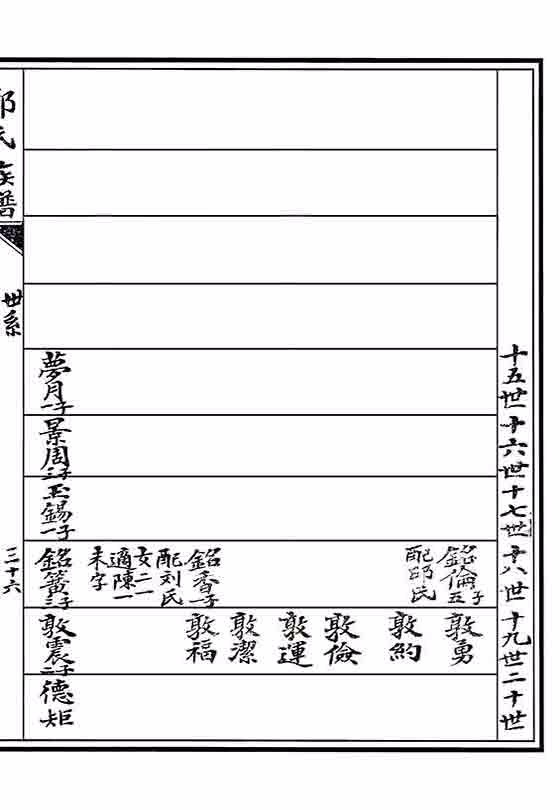 十五世
十六世
十七世
十八世
十九世
二十世
銘倫
五子
配邱氏
敦勇
敦約
敦儉
敦運
敦潔
銘香
一子
配刘氏
女二一
適陳一
未字
敦福
夢月
一子
景周
三子
玉錫
一子
銘簧
三子
敦震
二子
德矩
氏族譜
世系
三十六